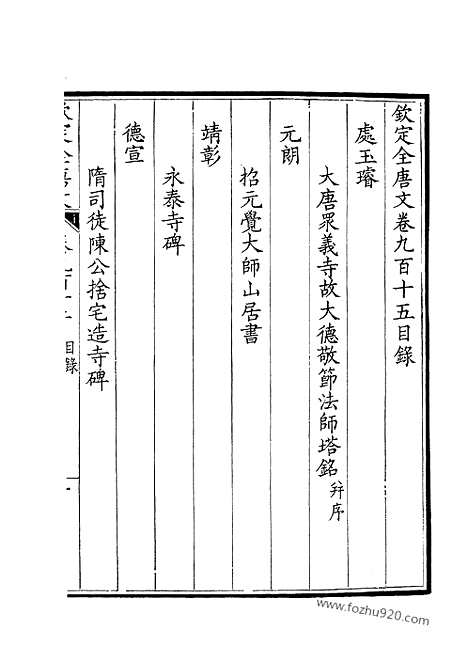 欽定全唐文卷九百十五目錄
處玉璿
大唐眾義寺故大德敬節法師塔銘并序
元朗
招元覺大師山居書
靖彰
永泰寺碑
德宣
隋司徒陳公捨宅造寺碑
目錄
一
www.fozhu920.com